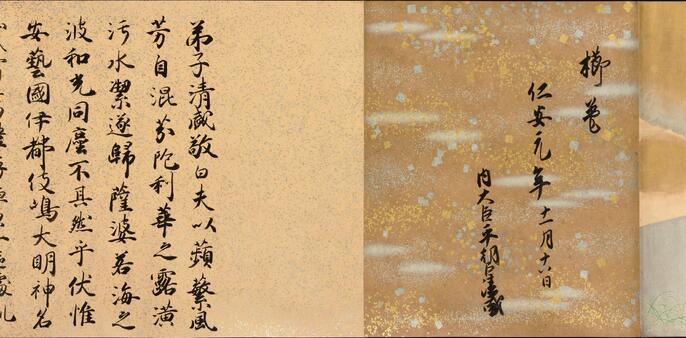 仁安元年十一月十八日
内大臣平朝臣清盛
弟子清盛敬白夫以蘋蘩風
芳自混芬陀利華之露潢
污水潔遂歸薩婆若海之
波和光同塵不其然乎伏惟
安藝國伊都伎嶋大明神名